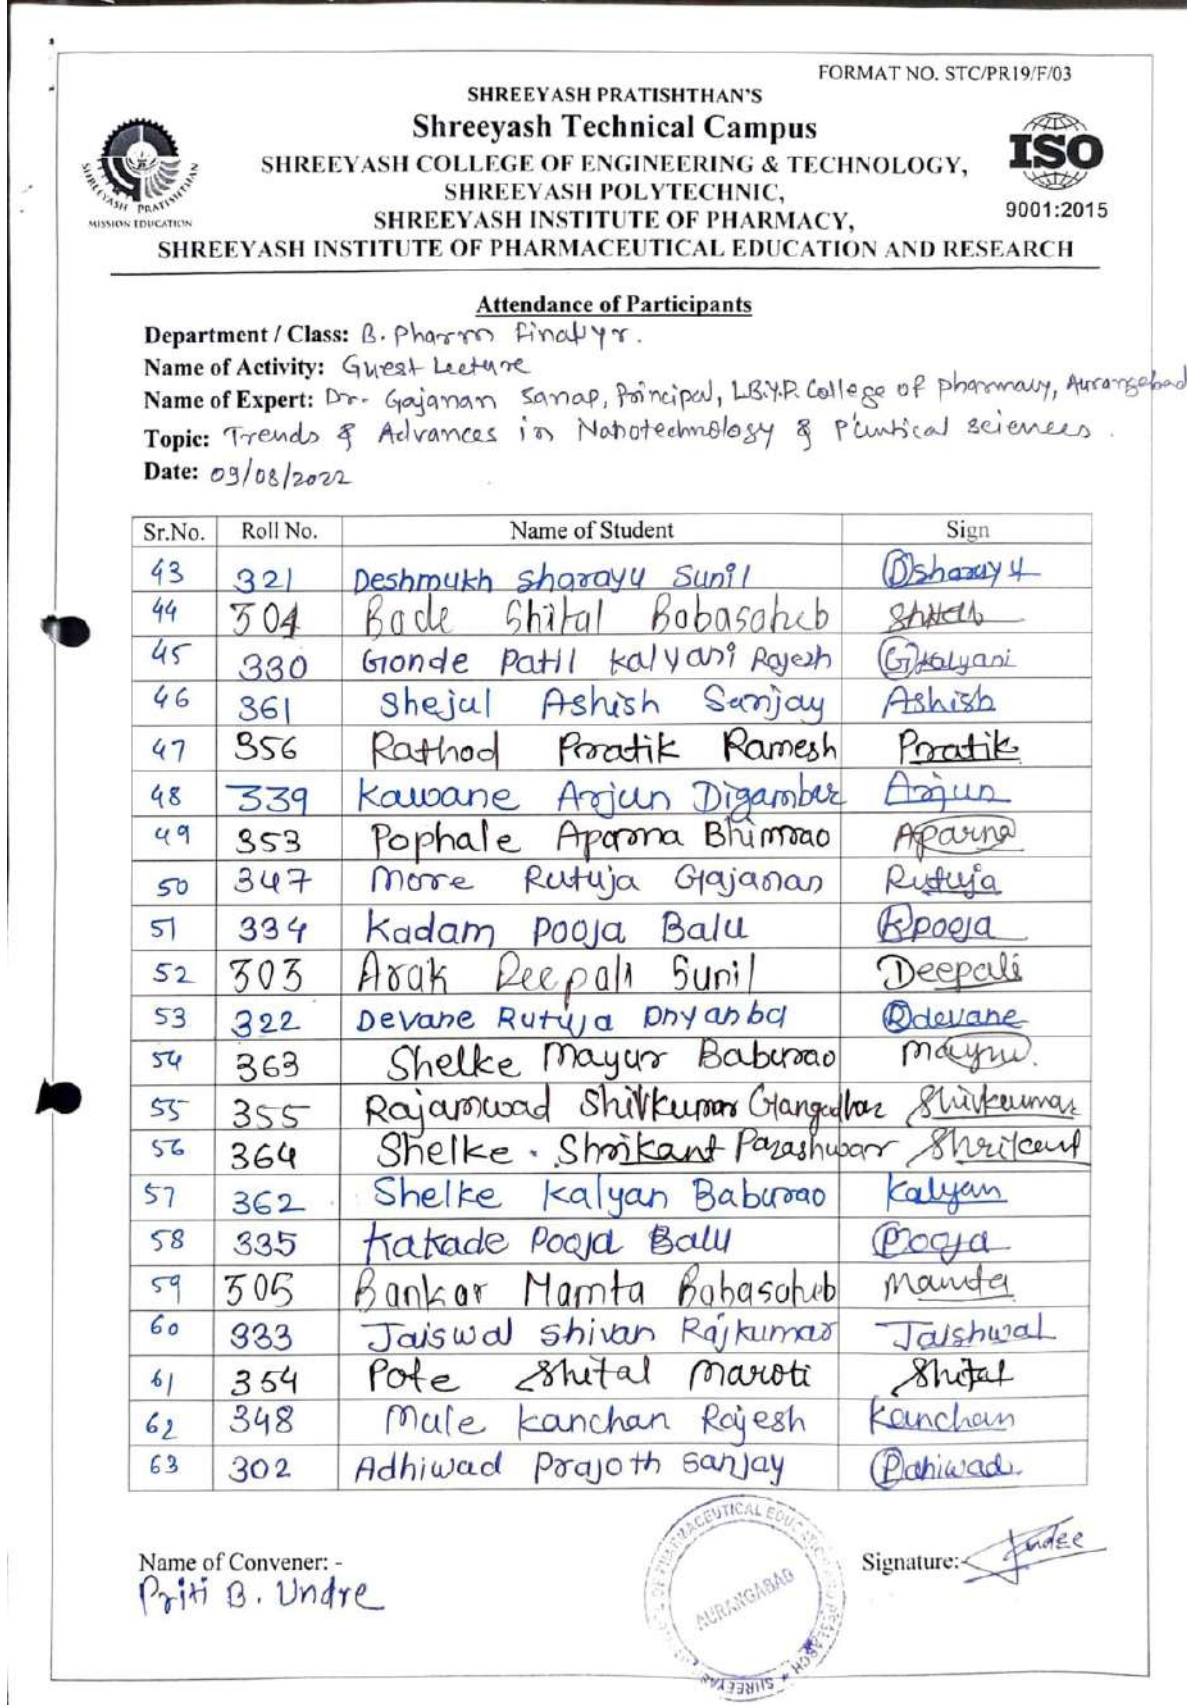 FORMAT NO. STC/PR19/F/03
SHREEYASH PRATISHTHAN'S
Shreeyash Technical Campus
SHREEYASH COLLEGE OF ENGINEERING & TECHNOLOGY,
SHREEYASH POLYTECHNIC,
SHREEYASH INSTITUTE OF PHARMACY,
SHREEYASH INSTITUTE OF PHARMACEUTICAL EDUCATION AND RESEARCH
SHREEYASH PRATISHTHAN
MISSION EDUCATION
ISO
9001:2015
Attendance of Participants
Department / Class: B. Pharm Final yr.
Name of Activity: Guest Lecture
Name of Expert: Dr. Gajanan Sanap, Principal, L.B.Y.P. College of pharmacy, Aurangabad
Topic: Trends & Advances in Nanotechnology & P'ceutical sciences.
Date: 09/08/2022
Sr.No. Roll No. Name of Student Sign
43 321 Deshmukh Sharayu Sunil Dsharayu
44 304 Bade Shital Babasaheb Shital
45 330 Gonde Patil Kalyani Rajesh Gkalyani
46 361 Shejul Ashish Sanjay Ashish
47 356 Rathod Pratik Ramesh Pratik
48 339 Kawane Arjun Digambar Arjun
49 353 Pophale Aparna Bhimrao Aparna
50 347 More Rutuja Gajanan Rutuja
51 334 Kadam Pooja Balu Kpooja
52 303 Arak Deepali Sunil Deepali
53 322 Devane Rutuja Dnyanba Rdevane
54 363 Shelke Mayur Baburao Mayur.
55 355 Rajamwad Shivkumar Gangadhar Shivkumar
56 364 Shelke . Shrikant Parashwar Shrikant
57 362 Shelke Kalyan Baburao Kalyan
58 335 Kakade Pooja Balu Pooja
59 305 Bankar Mamta Babasaheb Mamta
60 333 Jaiswal Shivan Rajkumar Jaishwal
61 354 Pote Shital Maroti Shital
62 348 Mule Kanchan Rajesh Kanchan
63 302 Adhiwad Prajoth Sanjay Padhiwad.
Name of Convener: -
Priti B. Undre
Signature:-
AURANGABAD